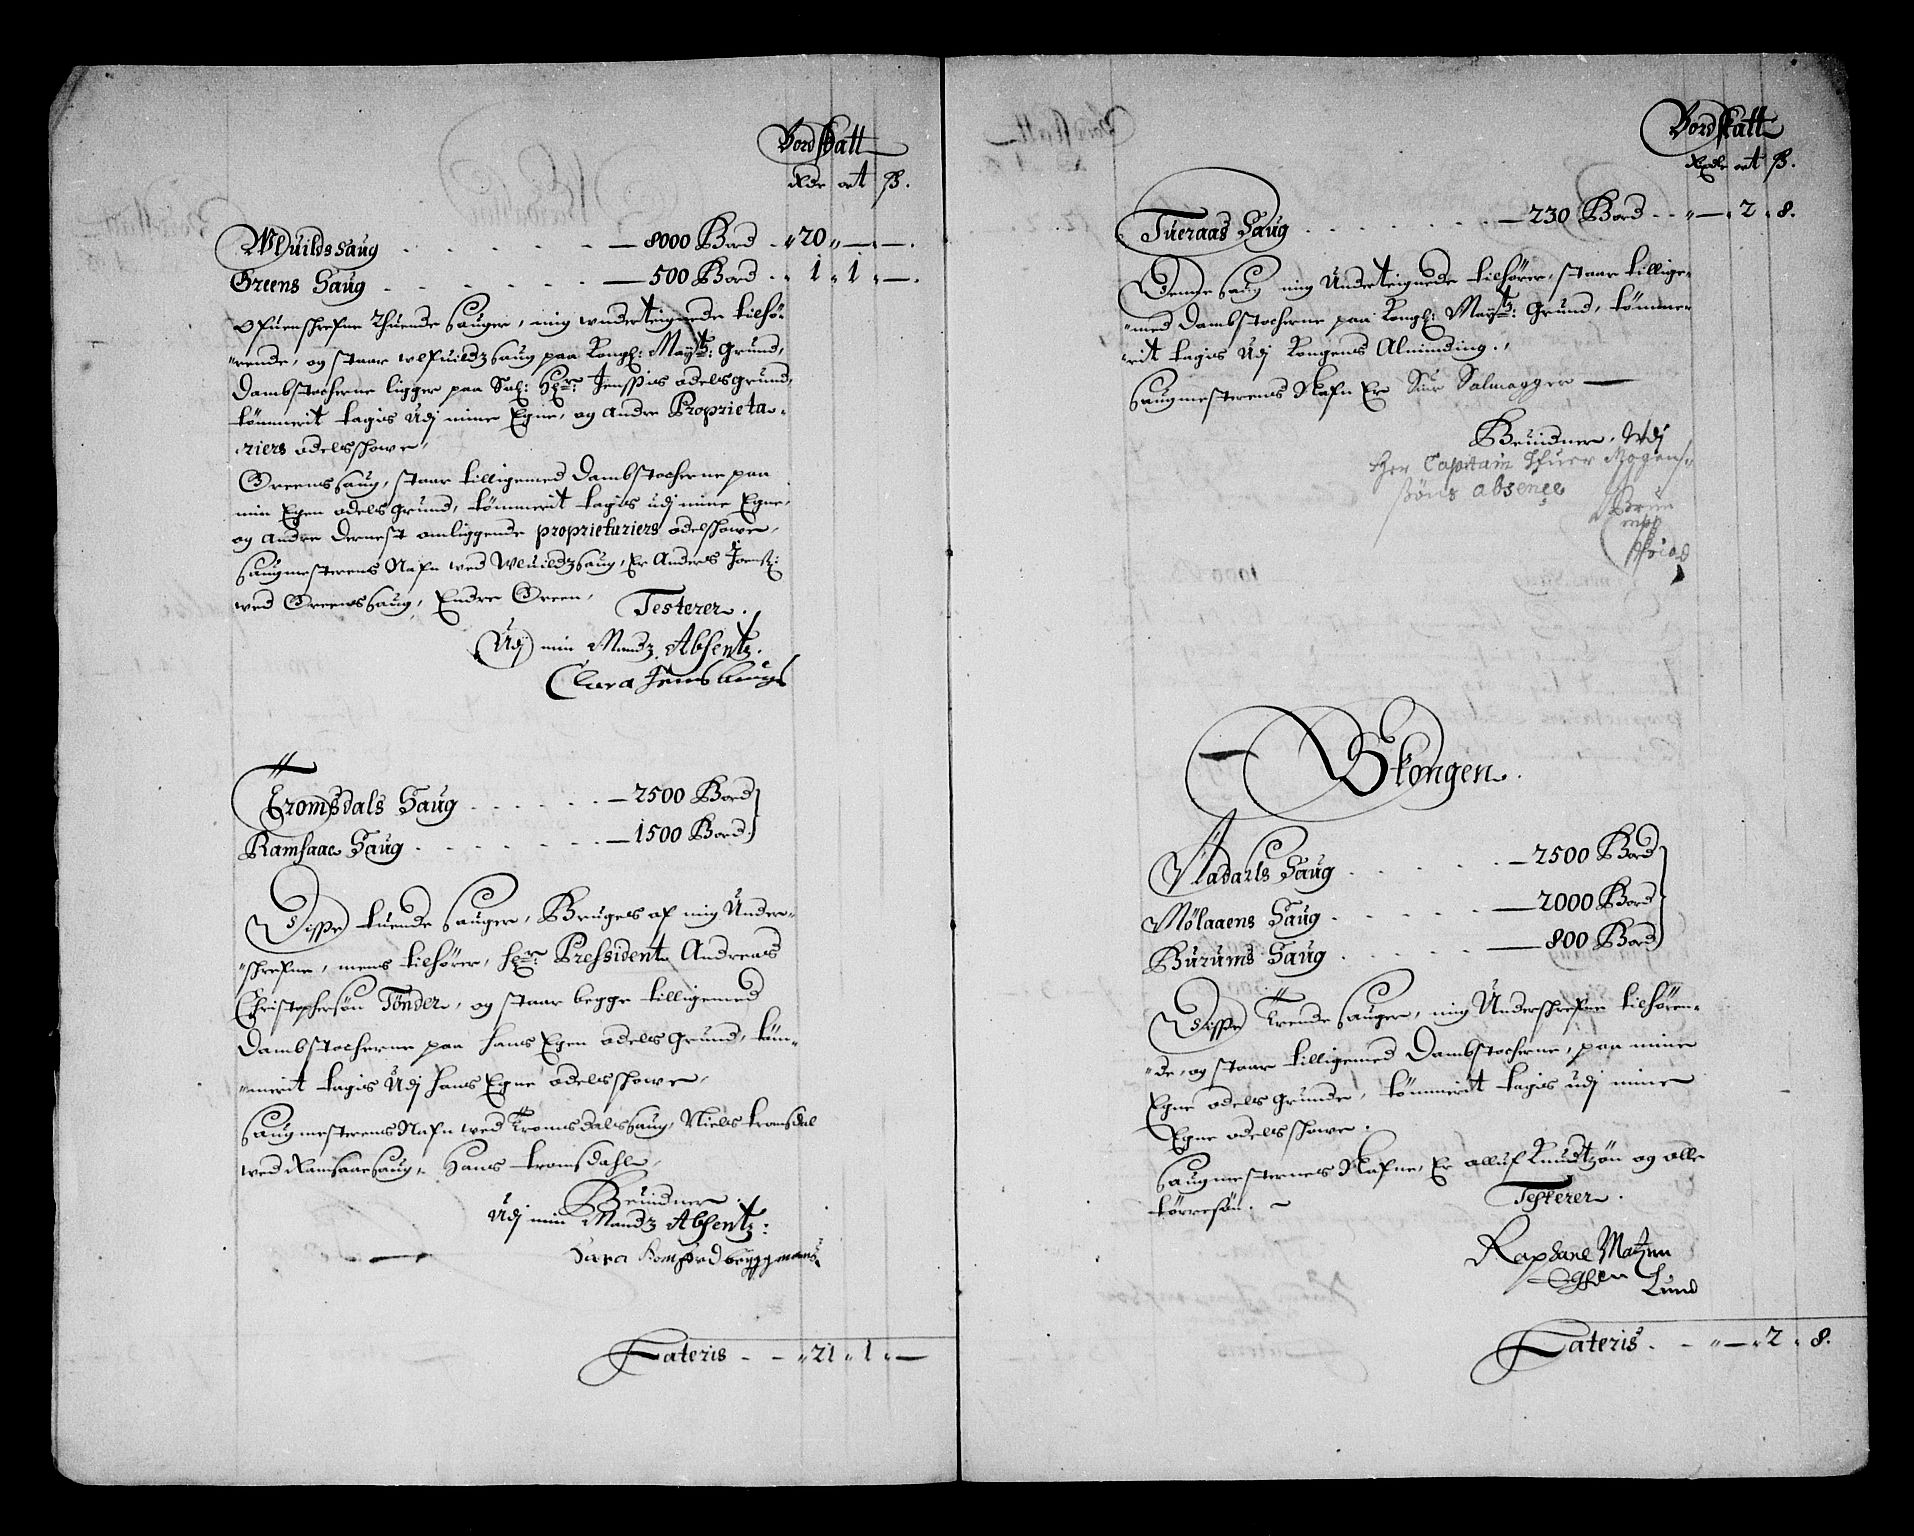 Bordskatt
Rdr ort ß.
Wuildssaug . . . . . — 8000 Bord . „ 20 „ — „ —.
Greens Saug . . . . . — 500 Bord . „ 1 „ 1 „ —.
Ofuenschrefne Thuende Sauger, mig underteignede tilhør-
„rende, og staar Wluildz saug paa Kongl: Maytz: Grund,
Dambstocherne ligger paa Sal: Hr: Jenssis odels grund,
tömmerit tagis Udj mine Egne, og andre Proprieta-
„riers odelsschowe,
Greens saug, staar tilligemed Dambstocherne paa
min Egen odels grund, tömmerit tagis udj mine Egne,
og andre dernest omliggende proprietariers odelsschowe,
Saugmesterens Nafn wed Wluildz saug, Er Anders Joensz:
wed Greens saug, Endre Green,
Testerer.
Udj min Mandz Absentz.
Clara Jens
Tromsdals Saug . . . . . — 2500 Bord
Ramsaae Saug . . . . . — 1500 Bord.
Disse tuende Sauger, Bruges af mig Under-
„schrefne, mens tilhører, Hr: Pressident Andreas
Christophersøn Tønder, og staar begge tilligemed
Dambstocherne paa hans Egen odels grund, töm-
„merit tagis Udj hans Egne odelsschowe,
Saugmesterens Nafn wed Tromsdals saug, Niels tromsdal
wed Ramsaae saug, Hans tromsdahl,
Beuidner
Udj min Mandz Absentz:
Sara
Lateris . - - „ 21 „ 1 „ —
Bordskatt
Rdr ort ß.
Tueraas Saug . . . . . — 230 Bord . . „ — „ 2 „ 8.
Dende saug mig Underteignede tilhører, staar tillige-
„med Dambstocherne paa Kongl: Maytz: Grund, tömme-
„rit tagis Udj Kongens Alminding.
Saugmesterens Nafn Er Siur Salmagger —
Beuidner, Udj
Her Capitain Ifuer Mogens-
søns absençe
Skongen.
Nadarls Saug . . . . . — 2500 Bord
Mölaaens Saug . . . . . — 2000 Bord
Burums Saug . . . . . — 800 Bord
Disse Trende Sauger, mig Underschrefne tilhören-
„de, og staar tilligemed Dambstocherne, paa mine
Egne odels grunde, tömmerit tagis udj mine
Egne odels schowe.
Saugmesternes Nafne, Er olluf Knudtzön og olle
törresön. ~
Testerer.
Raphael
Lund
Lateris . - „ — „ 2 „ 8.